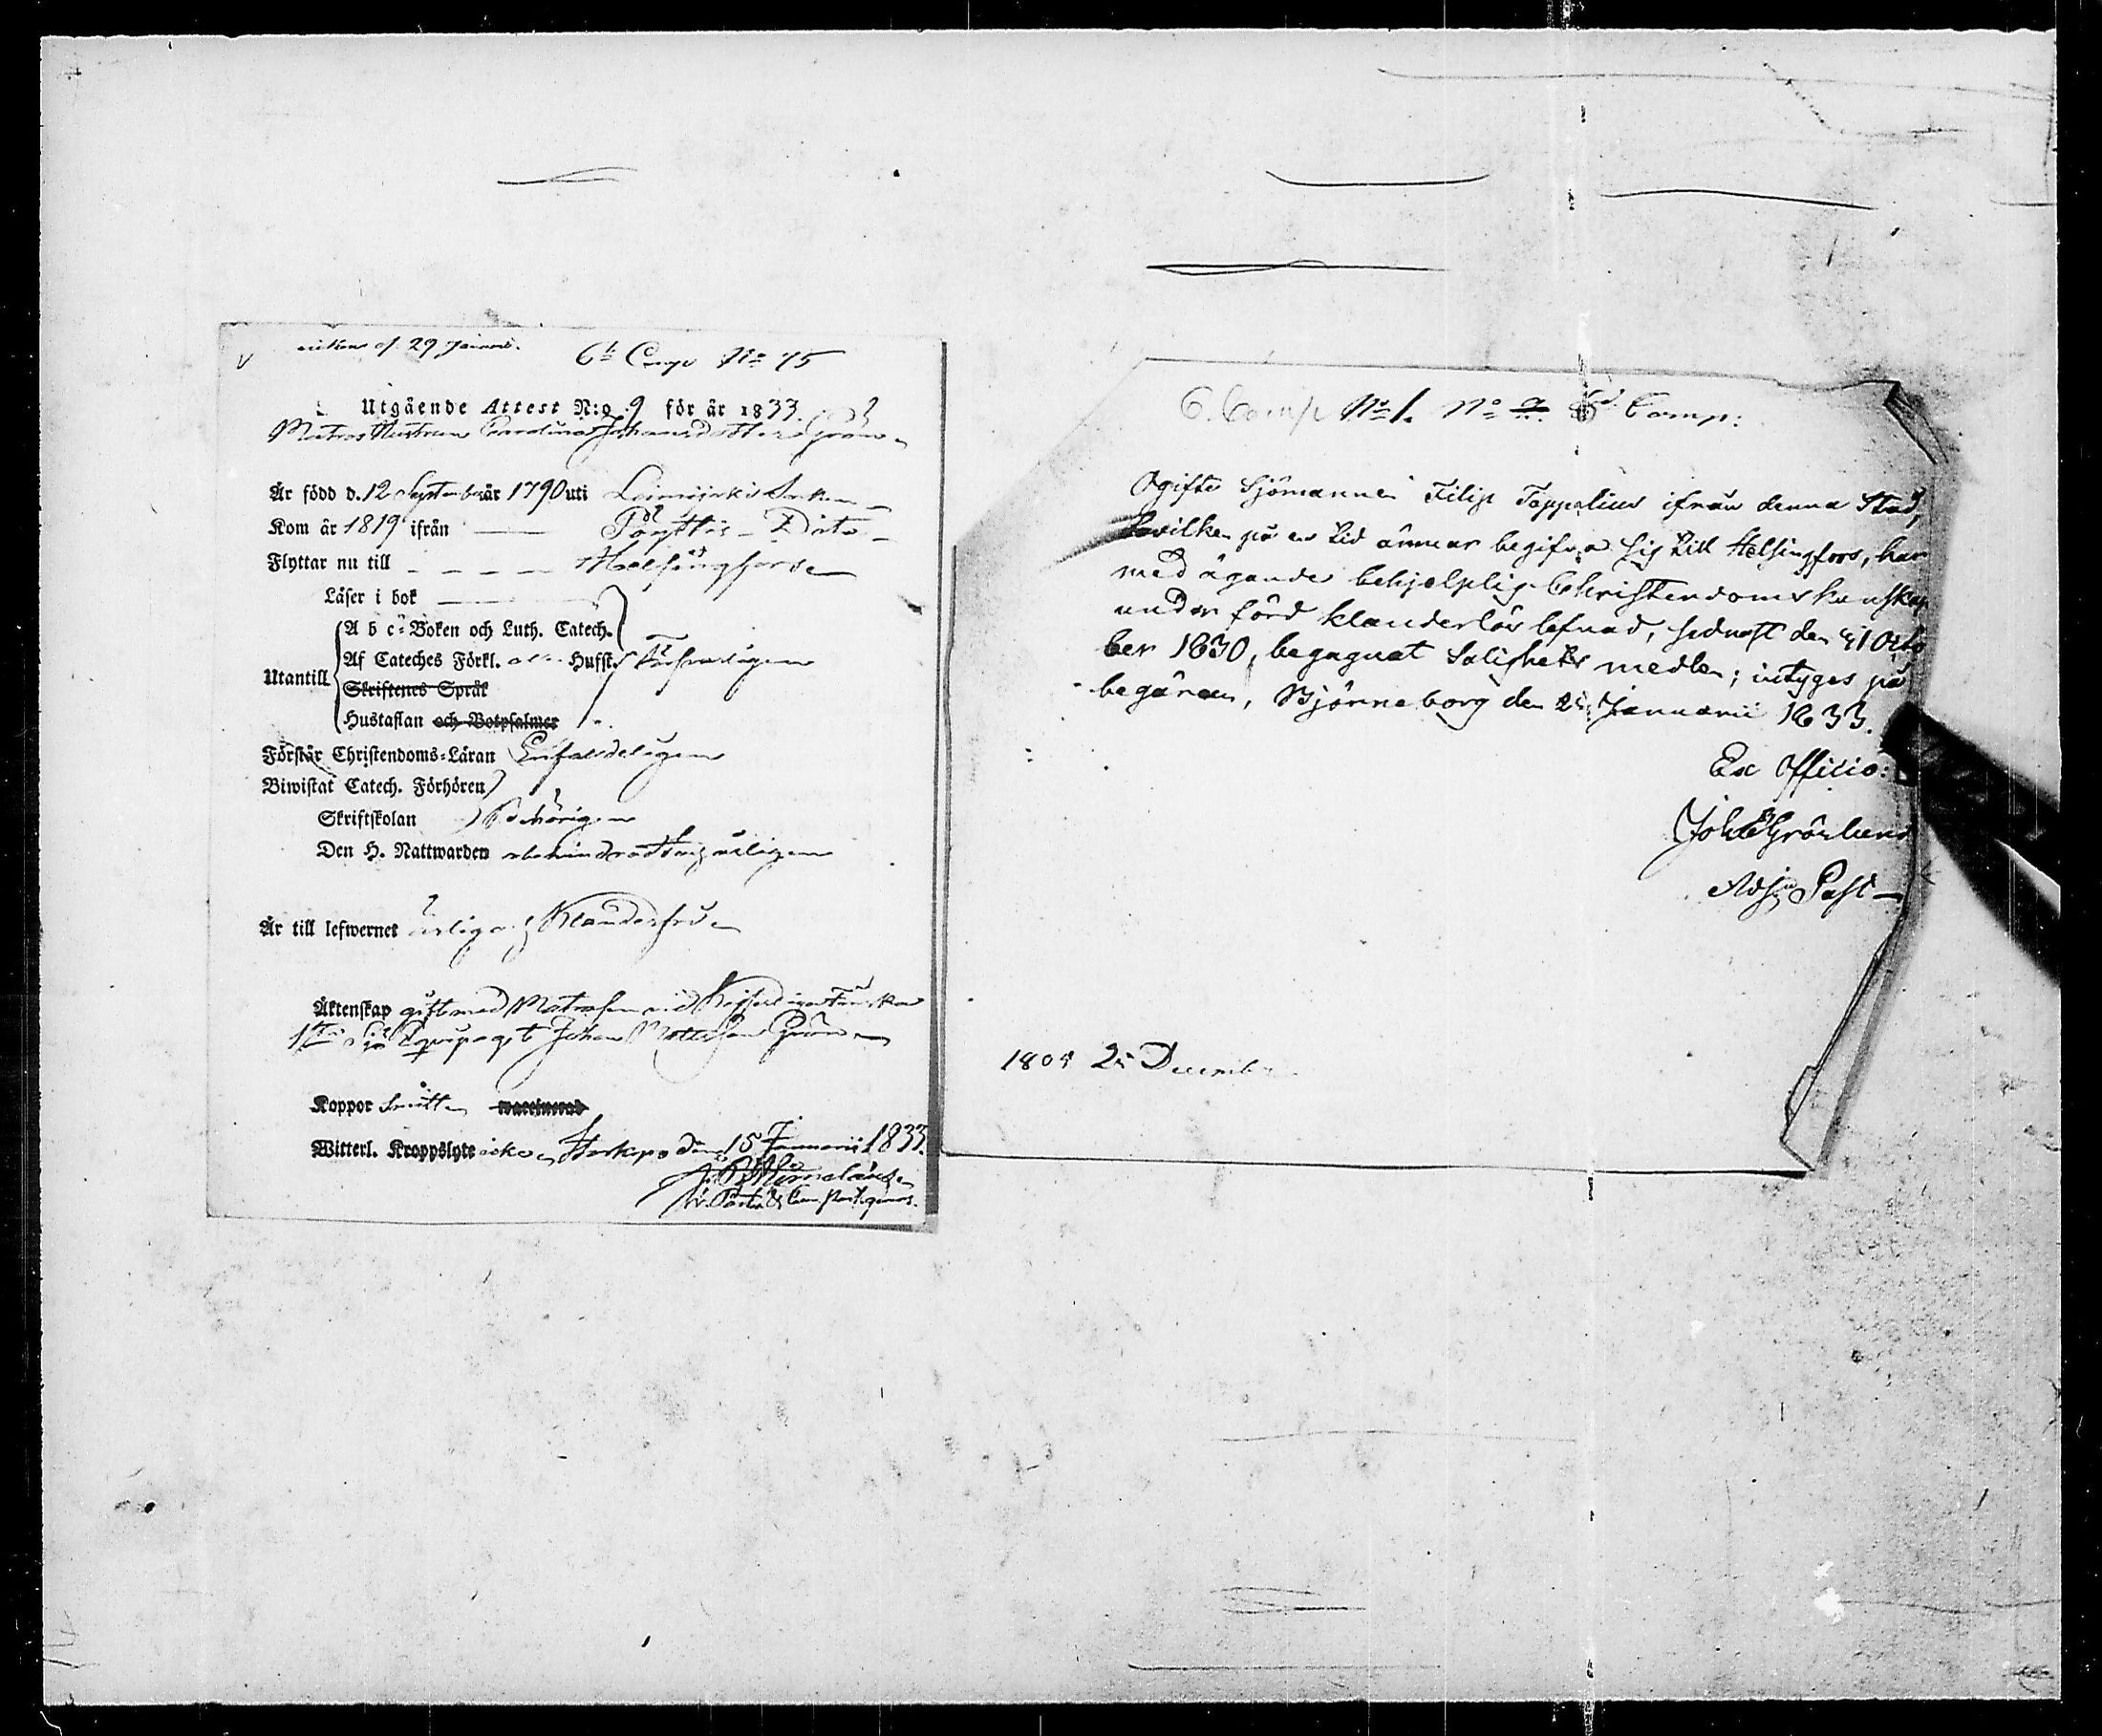 29
6te Comp No 75
Utgående Attest N:o 9 för år 1833.
Matros Hustrun Carolina Johansdotter Grön
Är född d. 12 September år 1790 uti Loimijoki Socken
Kom år 1819 ifrån Pöyttis Dito
Flyttar nu till Helsingfors
Läser i bok
A b c-Boken och Luth. Catech.
Af Cateches Förkl. Husft.
Utantill
Skriftenes Språk
Hustaflan och Botpsalmer
Förstår Christendoms-Läran Enfaldeligen
Biwistat Catech. Förhören
Skriftskolan Behörigen
Den H. Nattwarden
Är till lefwernet ärlig o. Klanderfri
Äktenskap gift med Matrosen vid Kejserliga Finska
1sta Sjö Equipaget Johan Mattsson Grön
Koppor Smitt. waccinerad
Witterl. Kroppslyte icke, Storkyro den 15 Januarii 1833.
6. Comp No 1. No 2. Comp:
Ogifte Sjömannen Filip Toppelius ifrån denna Stad,
hvilken på en tid ämnar begifva sig till Helsingfors, har
med ägande behjelplig Christendoms kunskap
under förd klanderlös lefnad, sednast den 31 Octo
ber 1830, begagnat Salighets medlen; intyges på
begäran, Björneborg den Januarii 1833.
Ex Officio:
Joh Grönlund
Adj. Past
1805 25 December